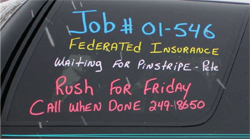 Job # 01-546
Federated Insurance
Waiting for Pinstripe - Pete
Rush for Friday
Call when done 249-18650